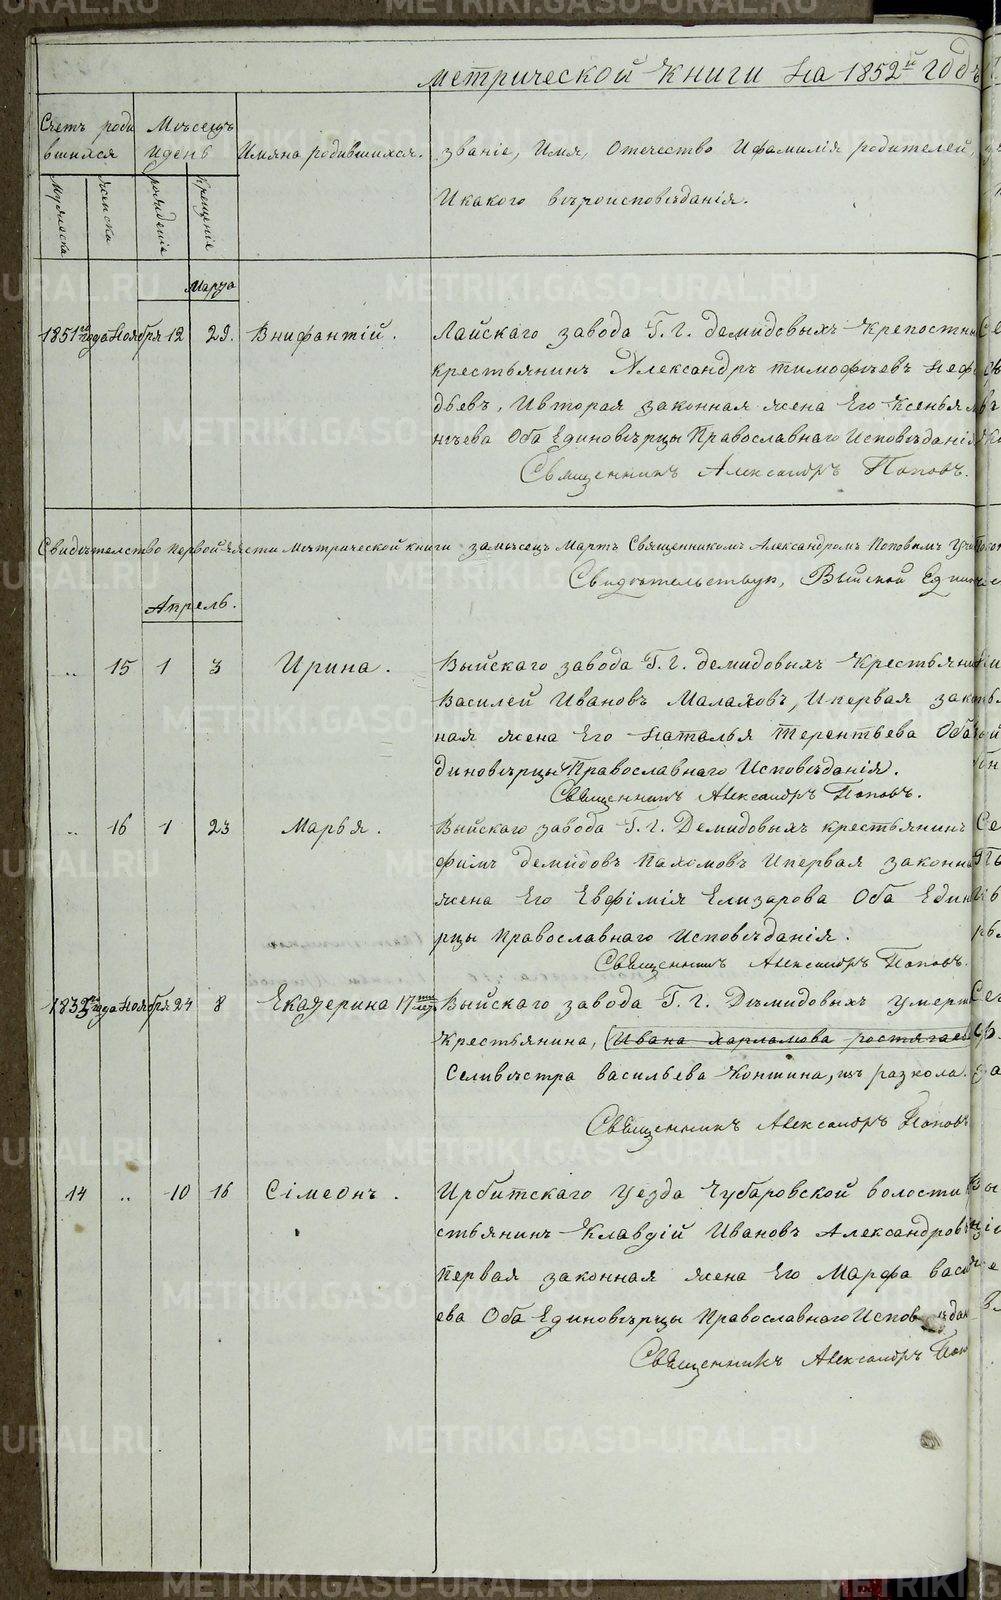 метрической книги на 1852й годъ
Счетъ роди
вшихся
Мѣсецъ
и день
Имяна родившихся.
званіе, Имя, Отечество И фамилія родителей,
И какого вѣроисповѣданія.
Мужеска
женска
рожденіе
Крещеніе
Марта
1851го года Ноября 12 29. Внифантій. Лайскаго завода Г. Г. демидовыхъ крепостны
крестьянинъ Александръ тимофѣевъ Неф
дьевъ, И вторая законная жена Его Ксенья
нтьева Оба Единовѣрцы Православнаго Исповѣданія
Священникъ Александръ Поповъ.
Свидѣтелство первой части метрической книги за мѣсецъ Мартъ Священникомъ Александромъ Поповымъ
Свидѣтельствую, Выйской Един
Апрель.
.. 15 1 3 Ирина. Выйскаго завода Г. Г. демидовыхъ Крестьяни
Василей Ивановъ Малаховъ, И первая зако
ная жена Его Наталья Терентьева Оба
диновѣрцы Православнаго Исповѣданія.
Священникъ Александръ Поповъ.
.. 16 1 23 Марья. Выйскаго завода Г. Г. Демидовыхъ крестьянинъ
фимъ демидовъ Пахомовъ И первая законна
жена Его Евфімія Елизарова Оба Един
рцы Православнаго Исповѣданія.
Священникъ Александръ Поповъ.
года Ноября 24 8 Екатерина 17 Выйскаго завода Г. Г. Дѣмидовыхъ умерш
крестьянина, (Ивана харламова
Селивѣстра васильева Коншина, изъ разкола.
Священникъ Александръ Поповъ
14 .. 10 16 Сімеонъ. Ирбитскаго уезда Чубаровской волости
стьянинъ Клавдій Ивановъ Александров
Первая законная жена Его Марфа васи
ева Оба Единовѣрцы Православнаго Исповѣдан
Священникъ Александръ Поп
METRIKI.GASO-URAL.RU